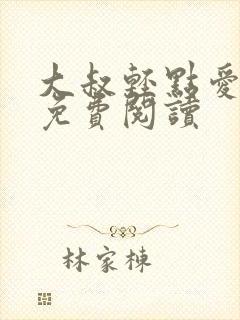 大叔輕點愛
免費閱讀
林家棟